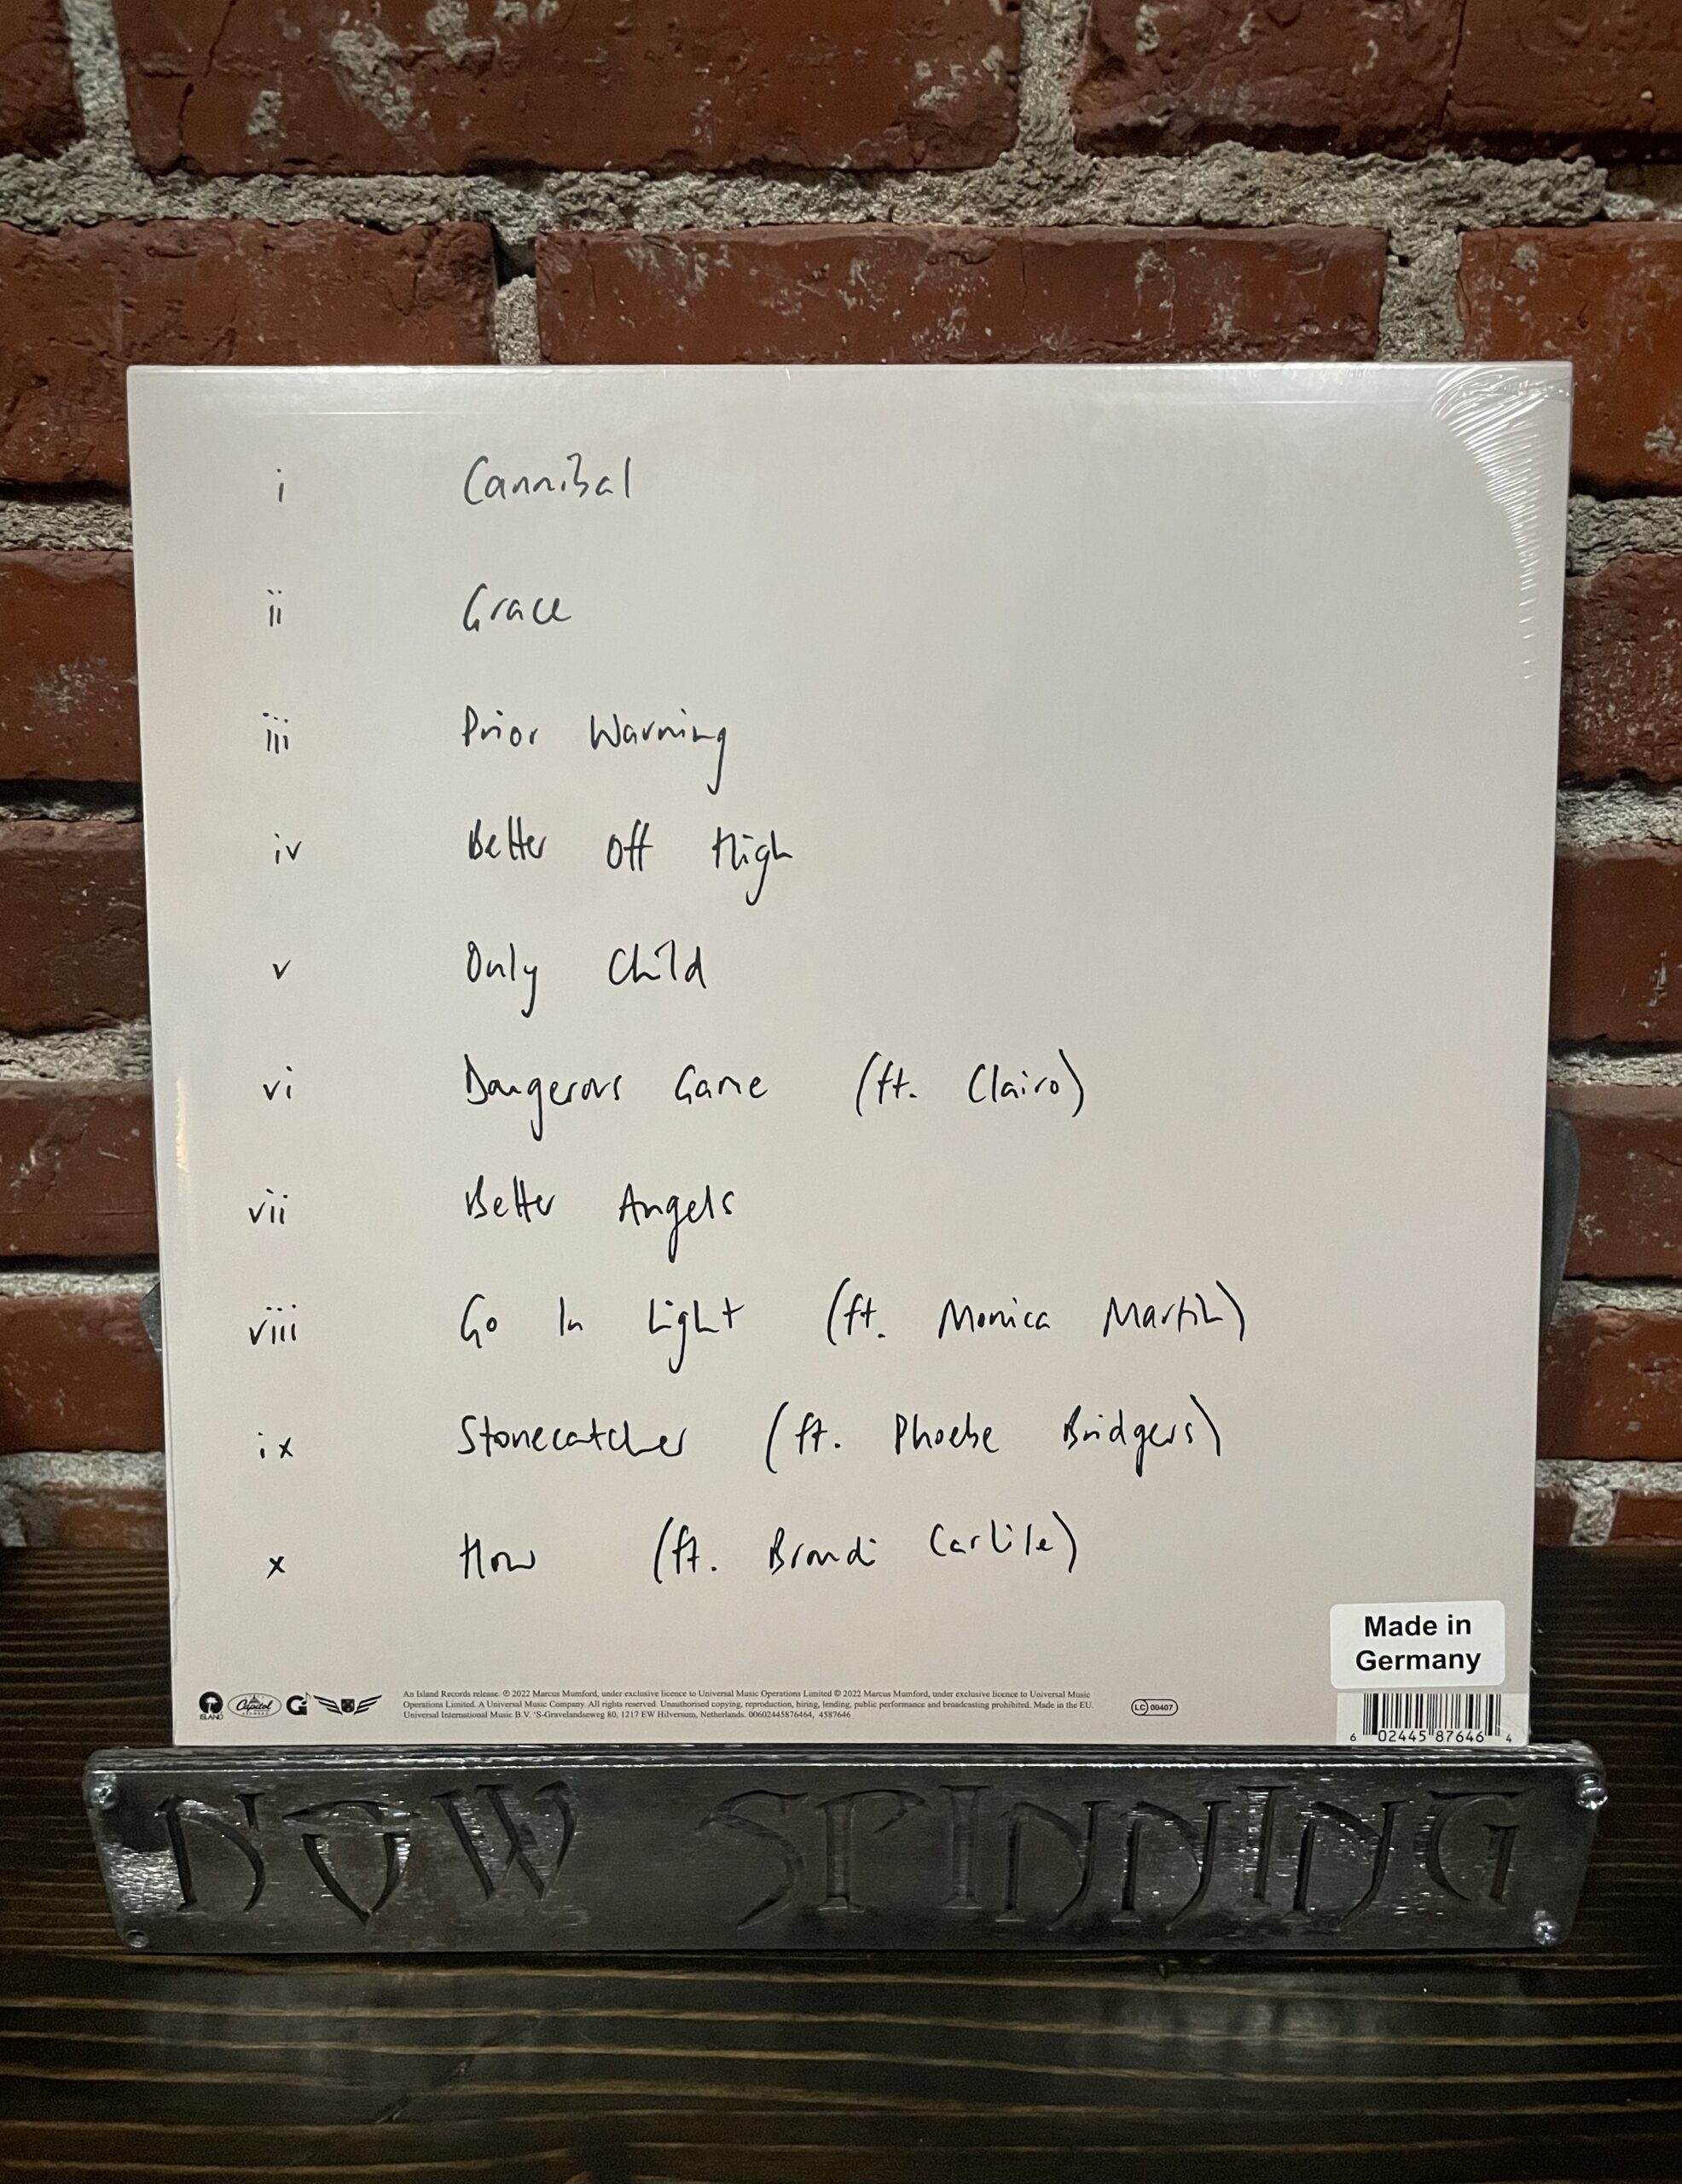 i Cannibal
ii Grace
iii Prior Warning
iv Better Off High
v Only Child
vi Dangerous Game (ft. Clairo)
vii Better Angels
viii Go In Light (ft. Monica Martin)
ix Stonecatcher (ft. Phoebe Bridgers)
x How (ft. Brandi Carlile)
Made in
Germany
ISLAND
Capitol
RECORDS
An Island Records release. ℗ 2022 Marcus Mumford, under exclusive licence to Universal Music Operations Limited © 2022 Marcus Mumford, under exclusive licence to Universal Music
Operations Limited. A Universal Music Company. All rights reserved. Unauthorised copying, reproduction, hiring, lending, public performance and broadcasting prohibited. Made in the EU.
Universal International Music B.V. 'S-Gravelandseweg 80, 1217 EW Hilversum, Netherlands. 00602445876464, 4587646
LC 00407
6 02445 87646 4
NOW SPINNING